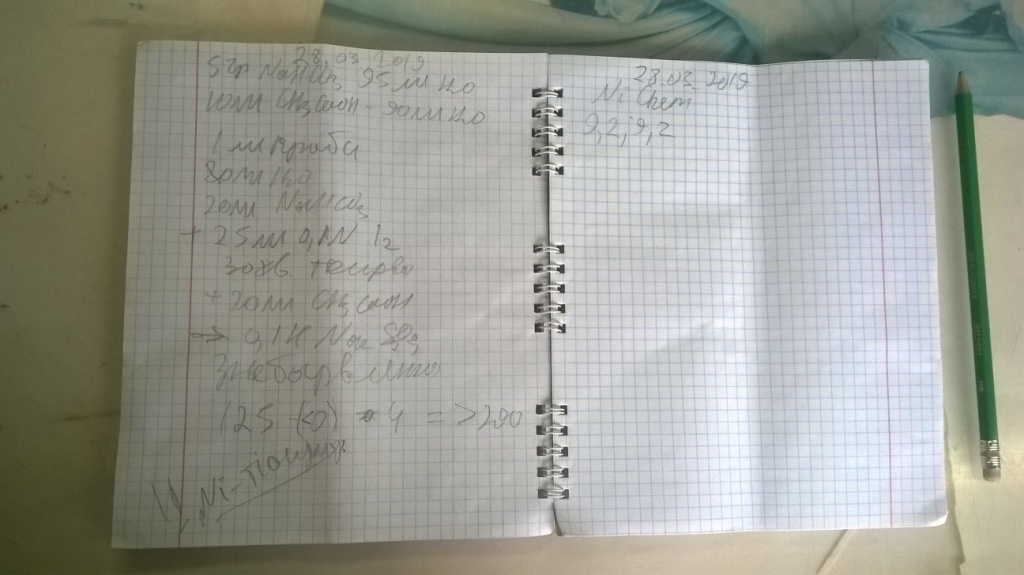 28.03 2019
5 гр NaHCO3 95 мл H2O
10 мл CH3COOH - 90 мл H2O
1 мл проби
80 мл H2O
20 мл NaHCO3
+ 25 мл 0,1N I2
30 хв. темрява
+ 20 мл CH3COOH
→ 0,1H Na2S2O3
Знебарвлено
(25 - (<0)) * 4 = >290
!! Ni-
28.03. 2019
Ni Chem
9,2; 9,2